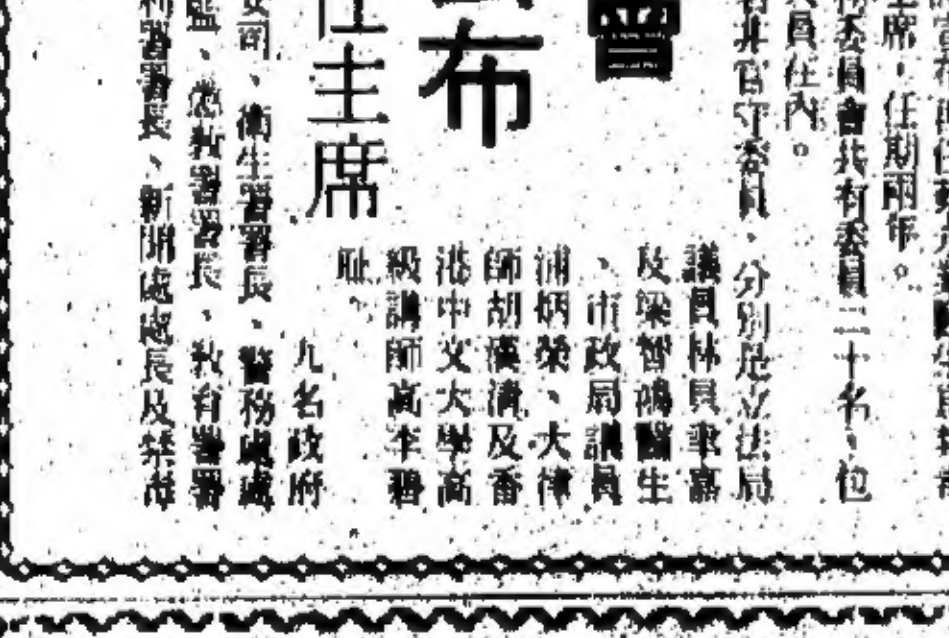 主席，任期兩年。
務委員會共有委員二十名，包
員在內。
者非官守委員，分別是立法局
議員林貝聿嘉
及梁智鴻醫生
、市政局議員
浦炳榮、大律
師胡漢清及香
港中文大學高
級講師高李碧
恥。
會
布
任主席
九名政府
安司、衞生署署長、警務處處
監、懲教署署長、教育署署
利署署長、新聞處處長及禁毒